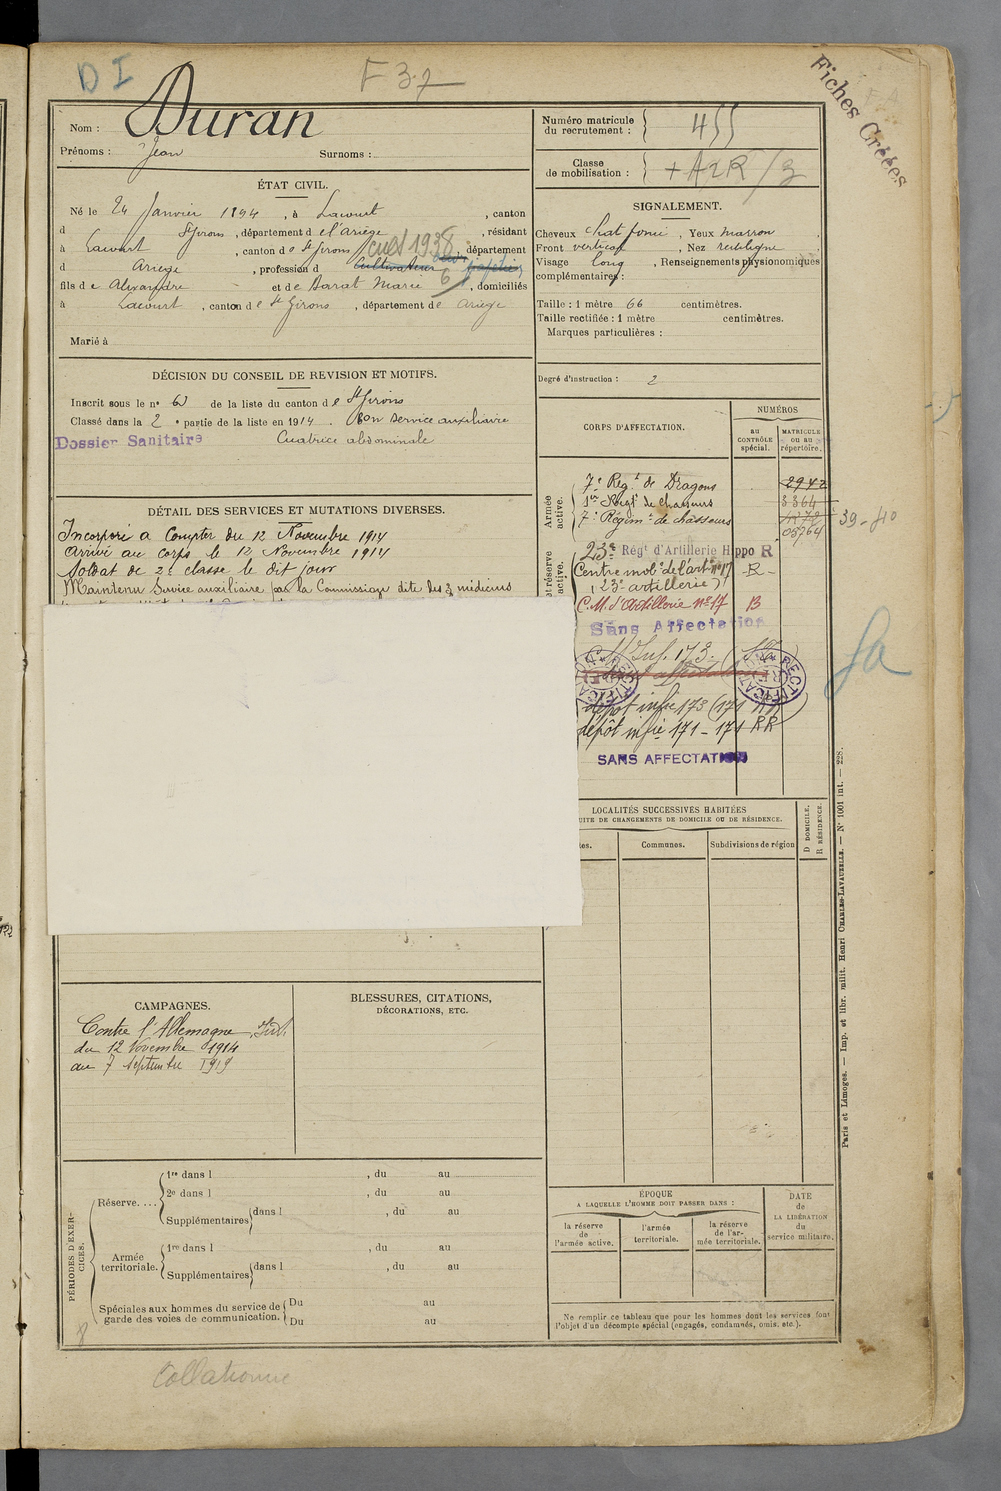 D I
F 37
Fiches Créées
Nom : Duran
Prénoms : Jean Surnoms :
Numéro matricule du recrutement : 455
Classe de mobilisation :
ÉTAT CIVIL.
Né le 24 Janvier 1894, à Lacourt, canton
d St Girons, département de l'Ariège, résidant
à Lacourt, canton de St Girons, département
d Ariège, profession d cultivateur
fils de Alexandre et de Barrat Marie, domiciliés
à Lacourt, canton de St Girons, département de Ariège
cult 1938
Marié à
SIGNALEMENT.
Cheveux Chat foncé, Yeux marron
Front vertical, Nez rectiligne
Visage long, Renseignements physionomiques
complémentaires :
Taille : 1 mètre 66 centimètres.
Taille rectifiée : 1 mètre centimètres.
Marques particulières :
Degré d'instruction : 2
DÉCISION DU CONSEIL DE REVISION ET MOTIFS.
Inscrit sous le n° de la liste du canton de St Girons
Classé dans la 2e partie de la liste en 1914. Bon service auxiliaire
Dossier Sanitaire
Cicatrice abdominale
DÉTAIL DES SERVICES ET MUTATIONS DIVERSES.
Incorporé a Compter du 12 Novembre 1914
Arrivé au corps le 12 Novembre 1914
Soldat de 2e classe le dit jour
Maintenu Service auxiliaire par la Commission dite des 3 médecins
CORPS D'AFFECTATION.
NUMÉROS
au CONTRÔLE spécial.
MATRICULE ou au répertoire.
Armée active.
7e Régt de Dragons 2942
1er Régt de Chasseurs 3364
7e Régim. de chasseurs
05764
39-40
et réserve
active.
23e Régt d'Artillerie Hippo R
Centre mob. de l'art. n°17 -R-
(23e artillerie)
C.M. d'Artillerie n°17 B
Sans Affectation
RECTIFICATION
RECTIFICATION
dépôt infie 173 (171 RR)
dépôt infie 171 - 171 RR
SANS AFFECTATION
LOCALITÉS SUCCESSIVES HABITÉES
UITE DE CHANGEMENTS DE DOMICILE OU DE RÉSIDENCE.
tes.
Communes.
Subdivisions de région
D DOMICILE.
R RÉSIDENCE.
CAMPAGNES.
Contre l'Allemagne
du 12 Novembre 1914
au 7 Septembre 1919
BLESSURES, CITATIONS,
DÉCORATIONS, ETC.
PÉRIODES D'EXERCICES.
Réserve....
1re dans l , du au
2e dans l , du au
Supplémentaires dans l , du au
Armée territoriale.
1re dans l , du au
Supplémentaires dans l , du au
Spéciales aux hommes du service de garde des voies de communication.
Du au
Du au
ÉPOQUE
A LAQUELLE L'HOMME DOIT PASSER DANS :
la réserve de l'armée active.
l'armée territoriale.
la réserve de l'armée territoriale.
DATE de LA LIBÉRATION du service militaire.
Ne remplir ce tableau que pour les hommes dont les services font
l'objet d'un décompte spécial (engagés, condamnés, omis, etc.).
Paris et Limoges. — Imp. et libr. milit. Henri CHARLES-LAVAUZELLE. — N° 1001 int. — 228.
Collationné